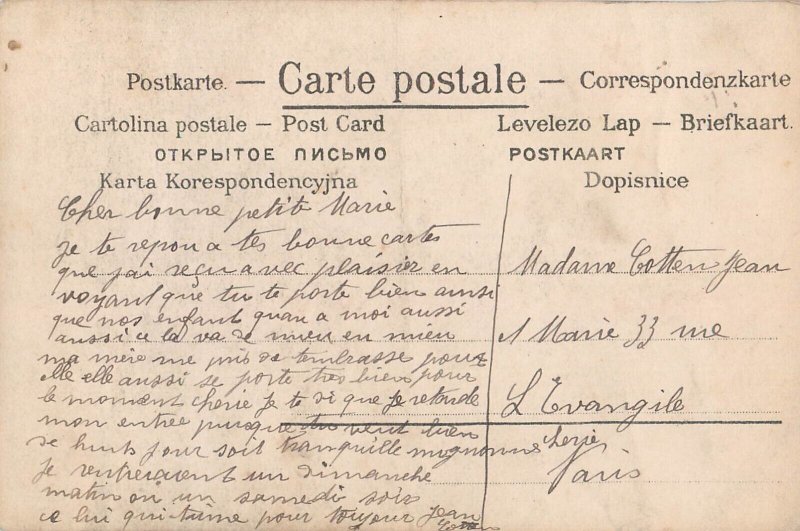 Postkarte. — Carte postale — Correspondenzkarte
Cartolina postale — Post Card
Levelezo Lap — Briefkaart.
ОТКРЫТОЕ ПИСЬМО
POSTKAART
Karta Korespondencyjna
Dopisnice
Cher bonne petite Marie
Je te repon a tes bonne cartes
que j'ai reçu avec plaisir en
voyant que tu te porte bien ainsi
que nos enfant quau a moi aussi
aussi ce la va de mieu en mieu
ma mère me pris de tembrasse pour
elle elle aussi se porte tres bien pour
le moment cherie Je te di que Je retarde
mon entree puisque tu veut bien
de huit jour soit tranquille mignonne cherie
Je rentrerai un dimanche
matin ou un samedi soir
ce lui qui t'ume pour toujour Jean
Cotten
Madame Cotten Jean
Marie 33 rue
L'Evangile
Paris